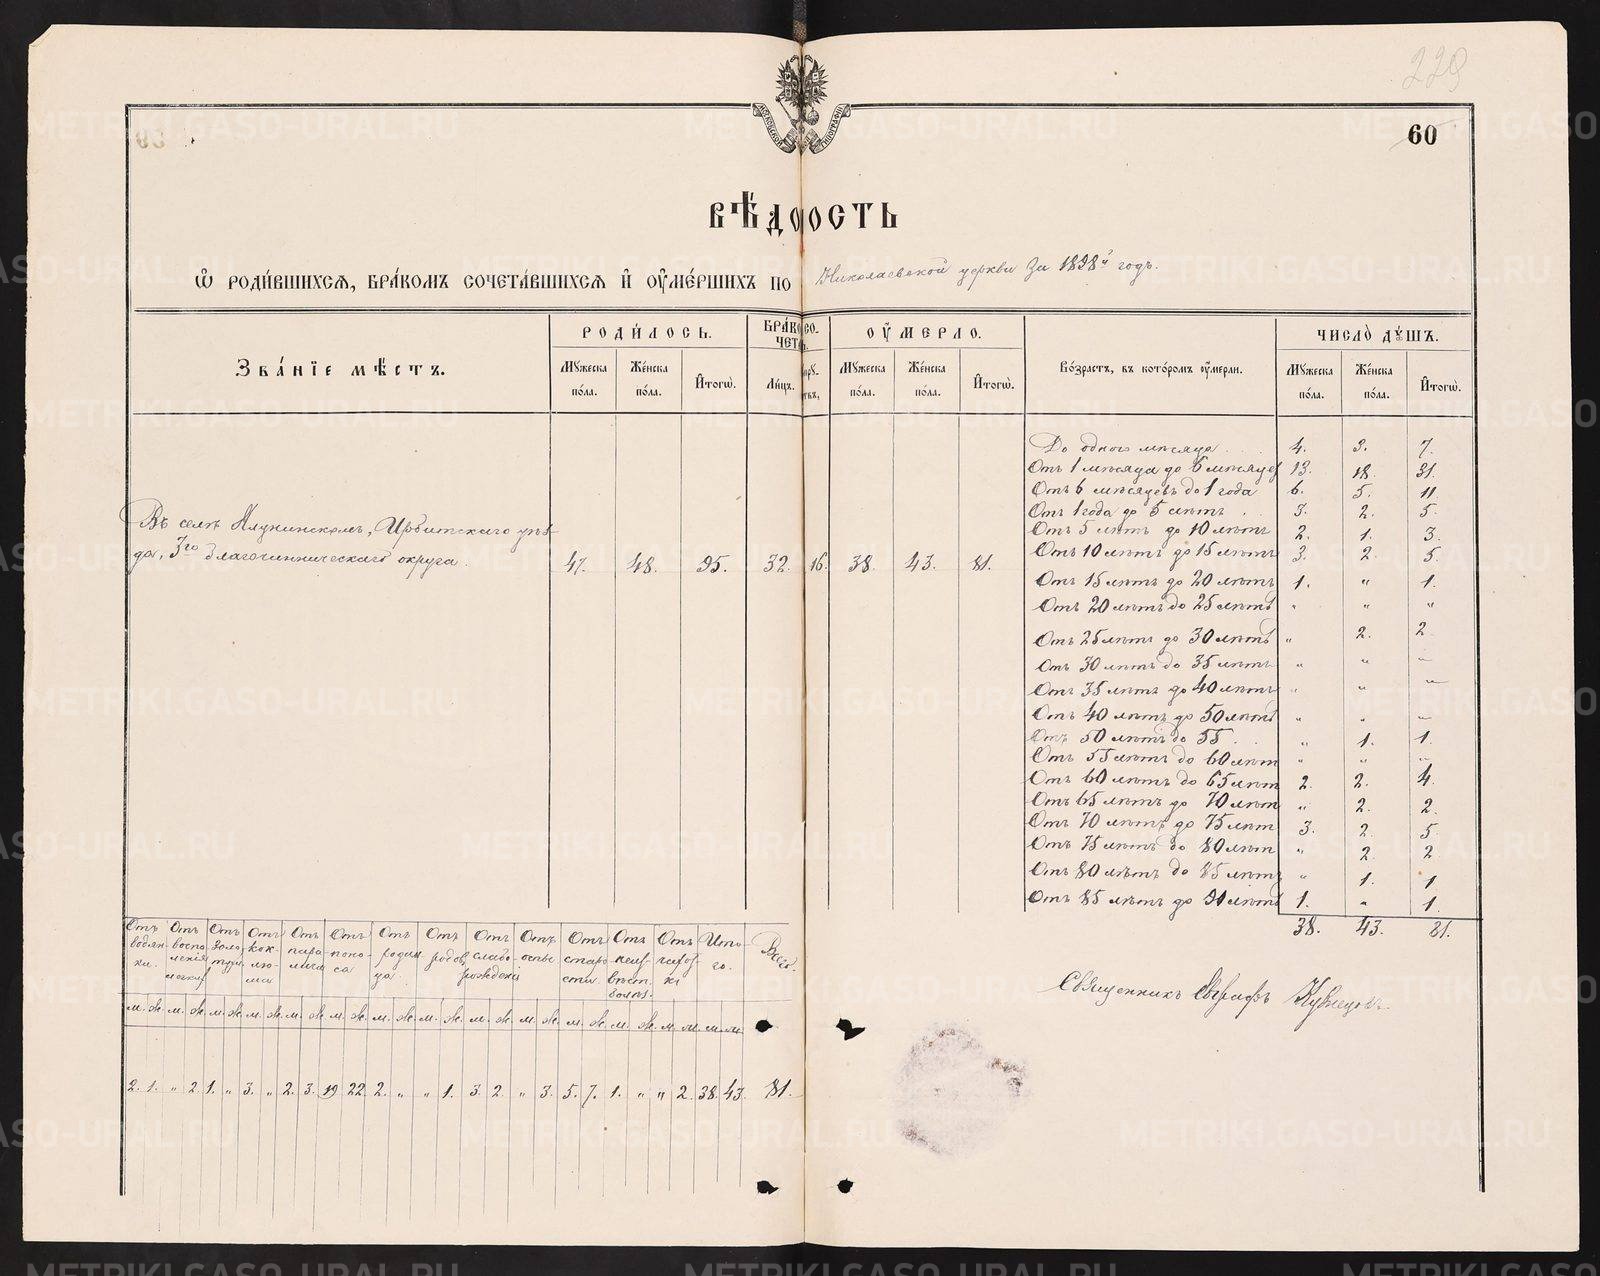 229
60
ВѢДОМОСТЬ
Ѡ РОДИВШИХСЯ, БРАКОМЪ СОЧЕТАВШИХСЯ И ОУМЕРШИХЪ ПО Николаевской церкви за 1898й годъ.
ЗВАНІЕ МѢСТЪ.
РОДИЛОСЬ.
БРАКОСО-
ЧЕТ.
ОУМЕРЛО.
Возрастъ, въ которомъ оумерли.
ЧИСЛО ДУШЪ.
Мужеска пола. Женска пола. Итого. Лицъ. Мужеска пола. Женска пола. Итого. Мужеска пола. Женска пола. Итого.
Въ селѣ Ялунинскомъ, Ирбитскаго уѣз-
да, 3го благочинническаго округа. 47. 48. 95. 32. 16. 38. 43. 81.
До одного мѣсяца . . 4. 3. 7.
Отъ 1 мѣсяца до 6 мѣсяцев 13. 18. 31.
Отъ 6 мѣсяцевъ до 1 года 6. 5. 11
Отъ 1 года до 5 лѣтъ . . 3. 2. 5.
Отъ 5 лѣтъ до 10 лѣтъ 2. 1. 3.
Отъ 10 лѣтъ до 15 лѣтъ 3. 2. 5.
Отъ 15 лѣтъ до 20 лѣтъ 1. " 1.
Отъ 20 лѣтъ до 25 лѣтъ " " "
Отъ 25 лѣтъ до 30 лѣтъ " 2. 2
Отъ 30 лѣтъ до 35 лѣтъ " " "
Отъ 35 лѣтъ до 40 лѣтъ " " "
Отъ 40 лѣтъ до 50 лѣтъ " " "
Отъ 50 лѣтъ до 55 . . " 1. 1.
Отъ 55 лѣтъ до 60 лѣт " " "
Отъ 60 лѣтъ до 65 лѣт 2. 2. 4.
Отъ 65 лѣтъ до 70 лѣт " 2. 2.
Отъ 70 лѣтъ до 75 лѣт 3. 2. 5
Отъ 75 лѣтъ до 80 лѣт " 2 2
Отъ 80 лѣтъ до 85 лѣтъ " 1. 1
Отъ 85 лѣтъ до 90 лѣтъ 1. " 1.
38. 43. 81.
Отъ водян-ки. Отъ воспа-ленія легкихъ Отъ Золо-тухи. Отъ кок-лю-ша Отъ пара-лича Отъ поно-са Отъ родим-ца Отъ родовъ Отъ слабо-рожденія Отъ оспы Отъ старо-сти Отъ неиз-вѣстн. болѣз. Отъ чахот-ки Ито-го. Всего.
м. ж. м. ж. м. ж. м. ж. м. ж. м. ж. м. ж. м. ж. м. ж. м. ж. м. ж. м. ж. м. ж. м. ж.
2. 1. " 2. 1. " 3. " 2. 3. 19 22. 2. " " 1. 3 2. " 3. 5. 7. 1. " " 2. 38. 43. 81.
Священникъ Евграфъ Кузнецовъ.
METRIKI.GASO-URAL.RU